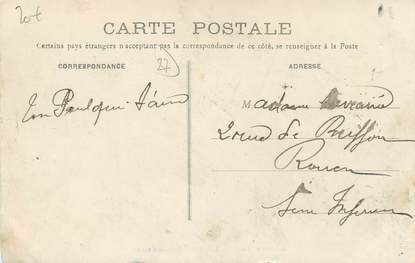 20f
CARTE POSTALE
Certains pays étrangers n'acceptant pas la correspondance de ce côté, se renseigner à la Poste
CORRESPONDANCE
27
ADRESSE
Ton Paul qui t'aime
Madame
2 rue de Buffon
Rouen
Seine Inférieure